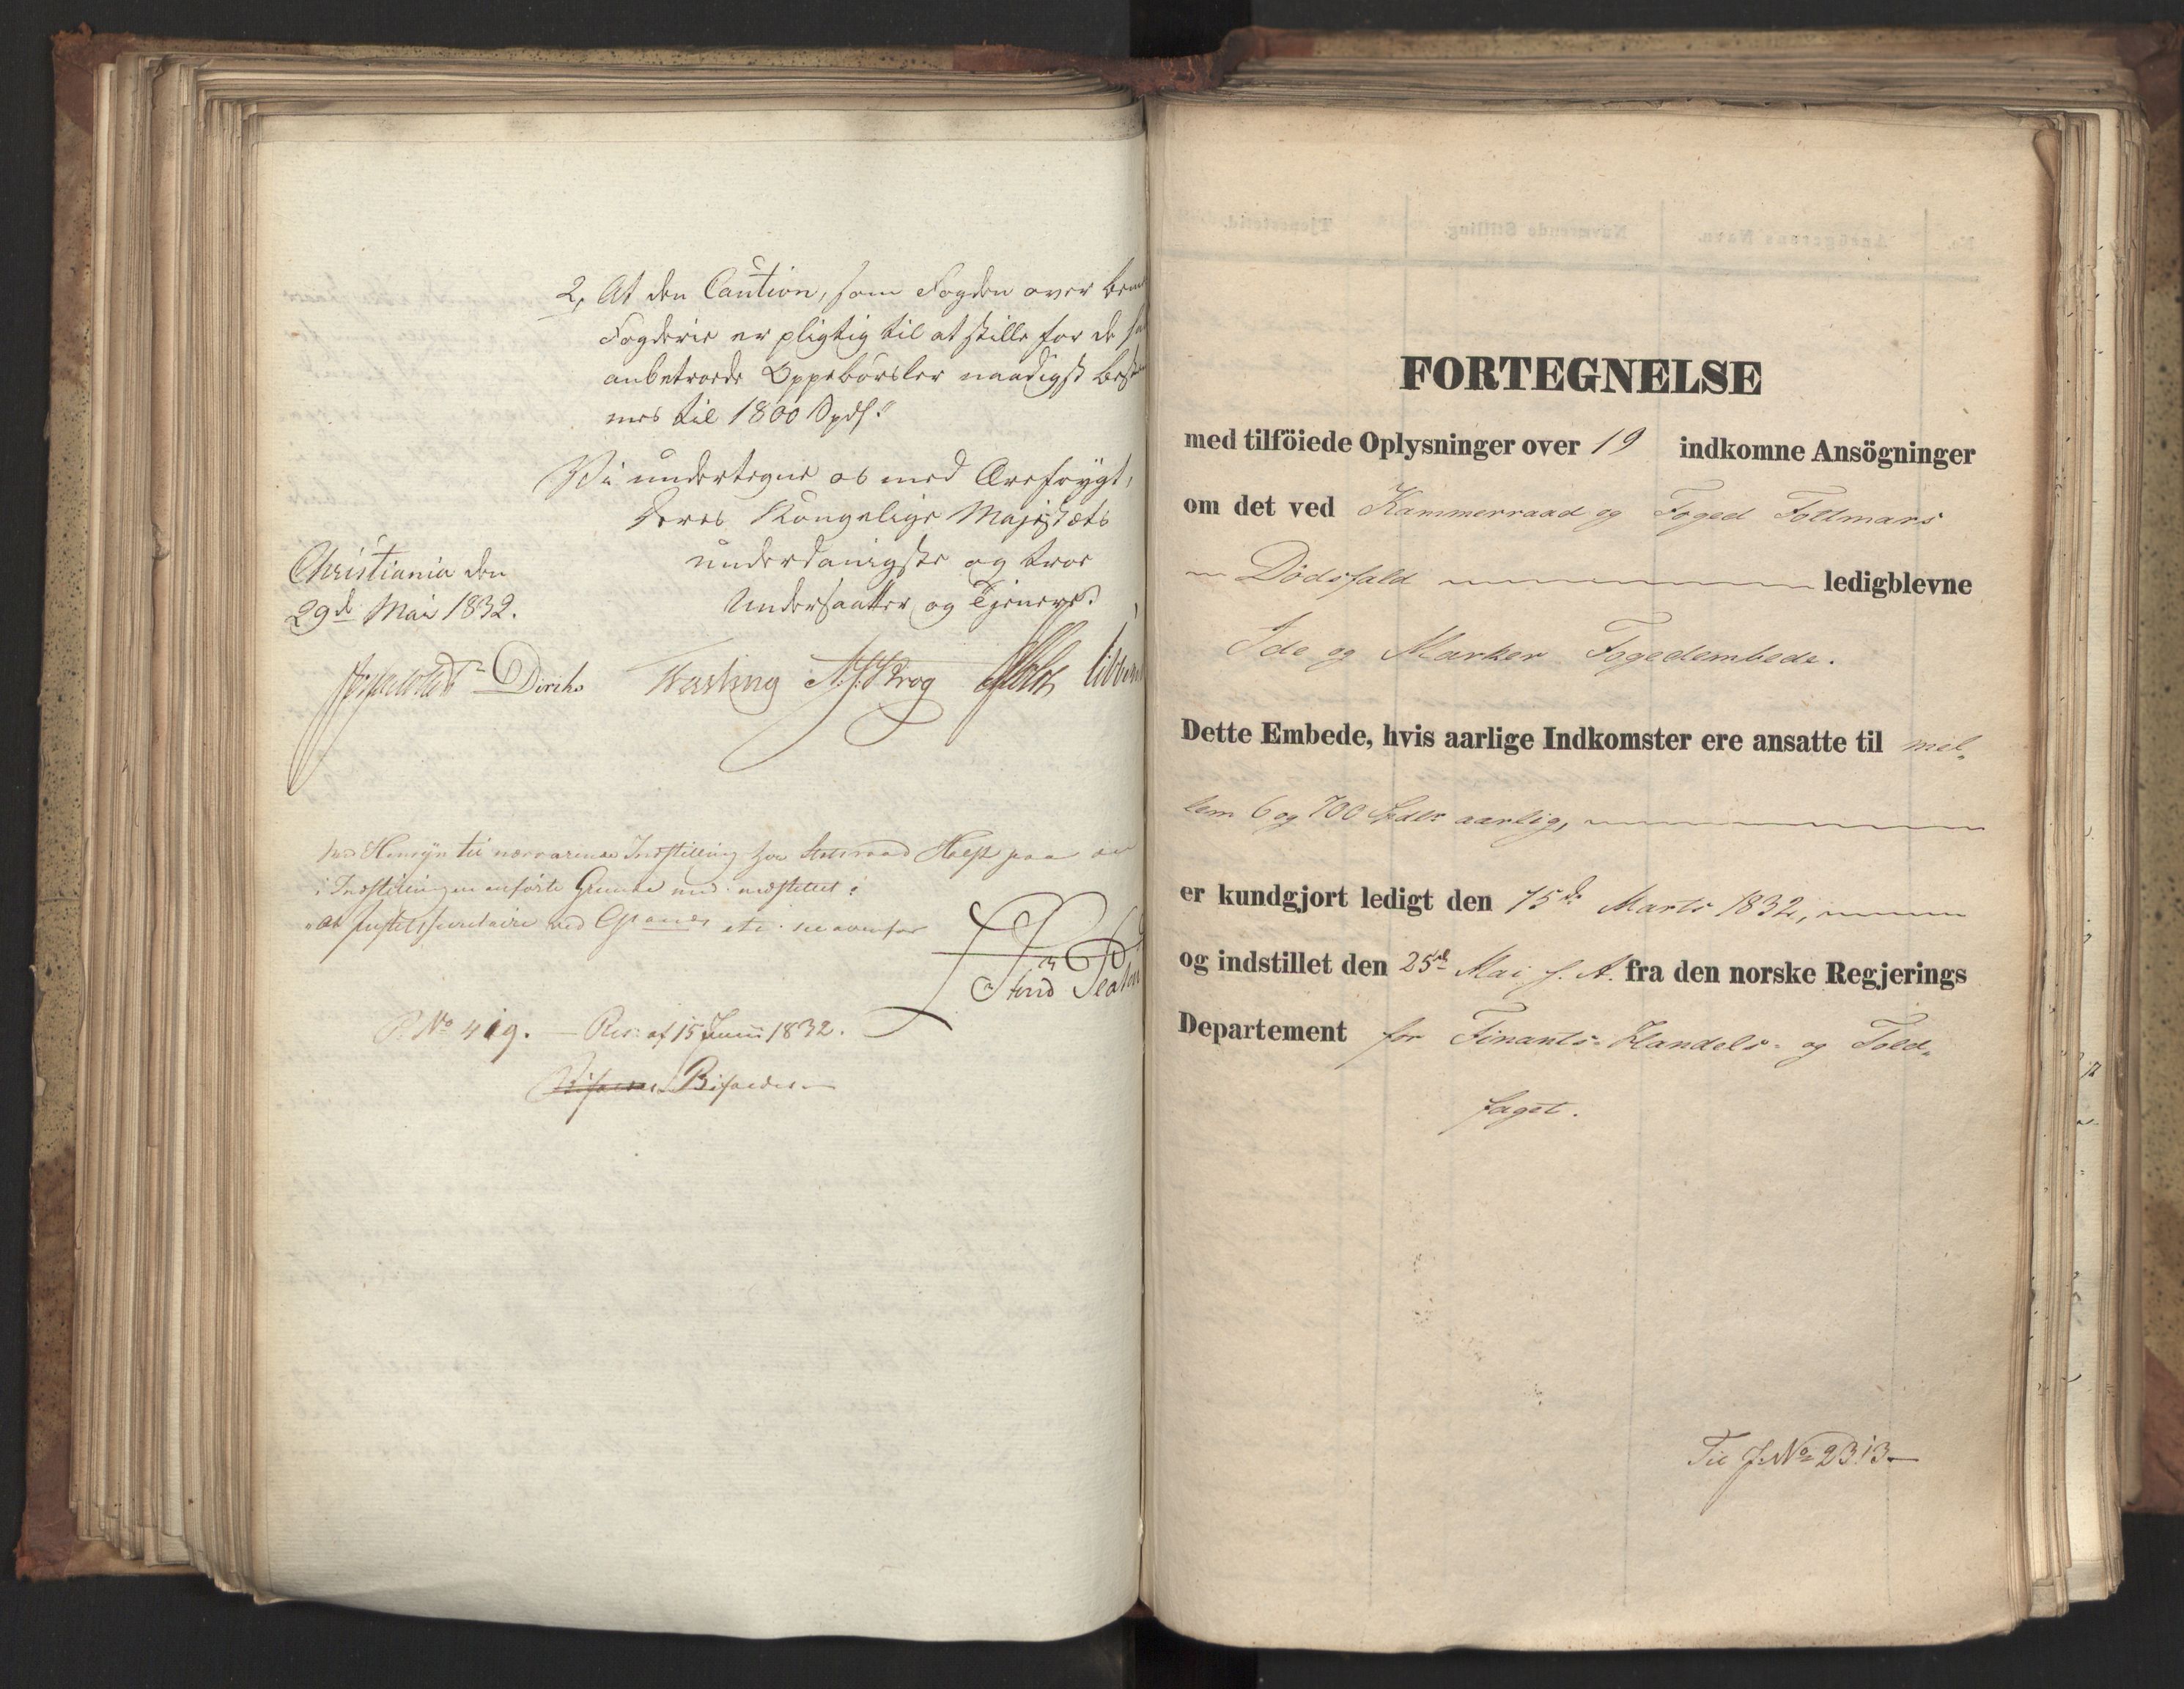 2, At den Caution, som Fogden over
Fogderie er pligtig til at stille for de
anbetroede Oppebørsler naadigst
mes til 1800 Spd.
Vi undertegne os med Ærefrygt,
Deres Kongelige Majestæts
underdanigste og troe
Undersaatter og Tjenere.
Christiania den
29de Mai 1832.
Diriks Fasting Krog Holst
Med Hensyn til nærværende Indstilling har Statsraad Holst paa
i Indstillingen anførte Grunde
P. No 419. – Res: af 15 Juni 1832.
Bifaldes
FORTEGNELSE
med tilföiede Oplysninger over 19 indkomne Ansögninger
om det ved Kammerraad og Foged
Dödsfald ledigblevne
Ide og Marker Fogedembede.
Dette Embede, hvis aarlige Indkomster ere ansatte til mel-
lem 6 og 700 Spdlr aarlig,
er kundgjort ledigt den 15de Marts 1832,
og indstillet den 25de Mai s. A. fra den norske Regjerings
Departement for Finants- Handels- og Told-
faget.
Til J. No 2313